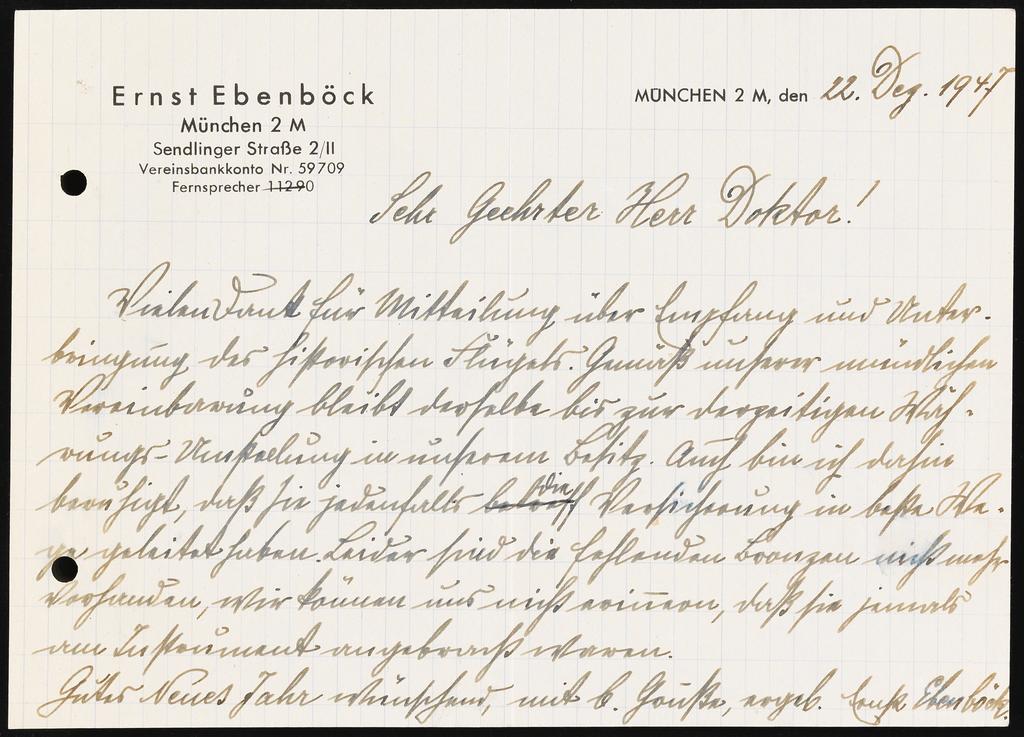 Ernst Ebenböck
München 2 M
Sendlinger Straße 2/II
Vereinsbankkonto Nr. 59709
Fernsprecher 11290
MÜNCHEN 2 M, den 22. Dez. 1947
Sehr Geehrter Herr Doktor!
Vielen Dank für Mitteilung über Empfang und Unter-
bringung des historischen Flügels. Gemäß unserer mündlichen
Vereinbarung bleibt derselbe bis zur derzeitigen Wäh-
rungs-Umstellung in unserem Besitz. Auch bin ich dahin
beruhigt, daß sie jedenfalls die Versicherung in beste We-
ge geleitet haben. Leider sind die fehlenden Bronzen nicht mehr
vorhanden, wir können uns nicht erinnern, daß sie jemals
am Instrument angebracht waren.
Gutes Neues Jahr wünschend, mit b. Grüße, ergeb. Ernst Ebenböck.